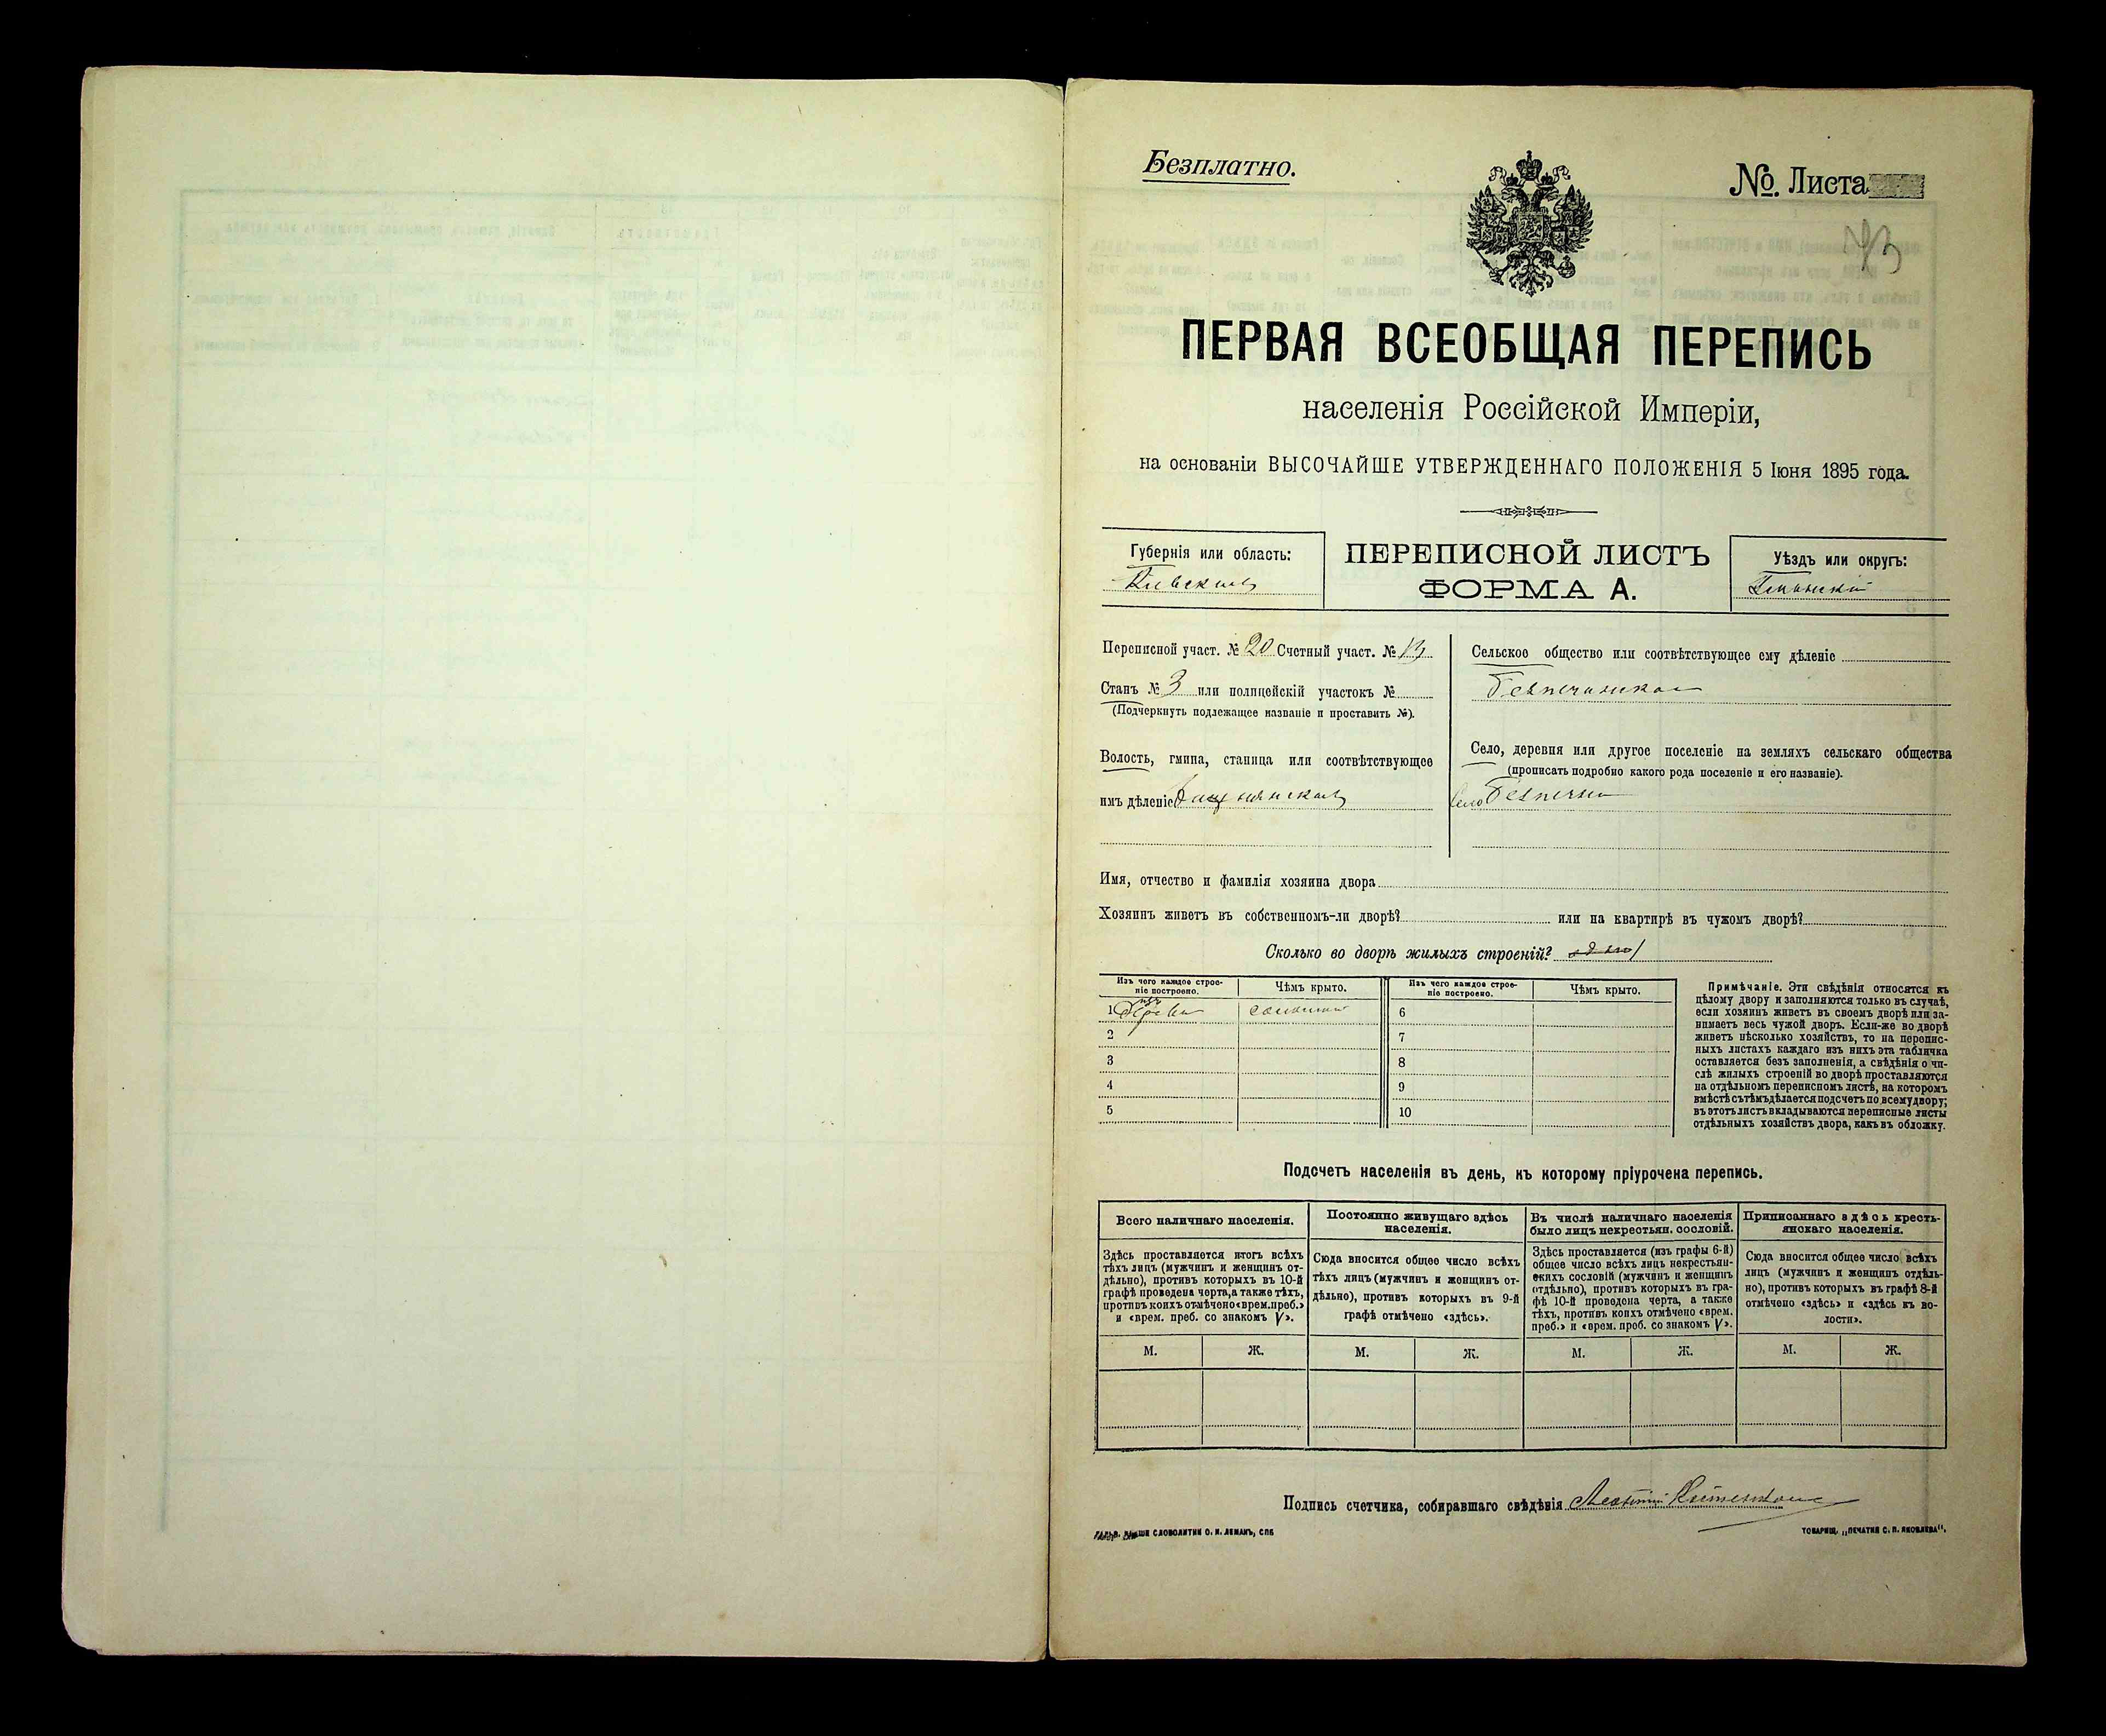 Безплатно.
№. Листа
43
ПЕРВАЯ ВСЕОБЩАЯ ПЕРЕПИСЬ
населенія Россійской Имперіи,
на основаніи ВЫСОЧАЙШЕ УТВЕРЖДЕННАГО ПОЛОЖЕНІЯ 5 Іюня 1895 года.
Губернія или область:
Кіевская
ПЕРЕПИСНОЙ ЛИСТЪ
ФОРМА А.
Уѣздъ или округъ:
Переписной участ. № 20 Счетный участ. № 13
Станъ № 3 или полицейскій участокъ №
(Подчеркнуть подлежащее названіе и проставить №).
Волость, гмина, станица или соотвѣтствующее
имъ дѣленіе
Сельское общество или соотвѣтствующее ему дѣленіе
Безпечанская
Село, деревня или другое поселеніе на земляхъ сельскаго общества
(прописать подробно какого рода поселеніе и его названіе).
Село Безпечна
Имя, отчество и фамилія хозяина двора
Хозяинъ живетъ въ собственномъ-ли дворѣ? или на квартирѣ въ чужомъ дворѣ?
Сколько во дворѣ жилыхъ строеній? одно 1
Изъ чего каждое строе-
ніе построено.
Чѣмъ крыто.
Изъ чего каждое строе-
ніе построено.
Чѣмъ крыто.
1 изъ дерева соломой
2
3
4
5
6
7
8
9
10
Примѣчаніе. Эти свѣдѣнія относятся къ
цѣлому двору и заполняются только въ случаѣ,
если хозяинъ живетъ въ своемъ дворѣ или за-
нимаетъ весь чужой дворъ. Если-же во дворѣ
живетъ нѣсколько хозяйствъ, то на перепис-
ныхъ листахъ каждаго изъ нихъ эта табличка
оставляется безъ заполненія, а свѣдѣнія о чи-
слѣ жилыхъ строеній во дворѣ проставляются
на отдѣльномъ переписномъ листѣ, на которомъ
вмѣстѣ съ тѣмъ дѣлается подсчетъ по всему двору;
въ этотъ листъ вкладываются переписные листы
отдѣльныхъ хозяйствъ двора, какъ въ обложку.
Подсчетъ населенія въ день, къ которому пріурочена перепись.
Всего наличнаго населенія.
Здѣсь проставляется итогъ всѣхъ
тѣхъ лицъ (мужчинъ и женщинъ от-
дѣльно), противъ которыхъ въ 10-й
графѣ проведена черта, а также тѣхъ,
противъ коихъ отмѣчено «врем. преб.»
и «врем. преб. со знакомъ V».
Постоянно живущаго здѣсь
населенія.
Сюда вносится общее число всѣхъ
тѣхъ лицъ (мужчинъ и женщинъ от-
дѣльно), противъ которыхъ въ 9-й
графѣ отмѣчено «здѣсь».
Въ числѣ наличнаго населенія
было лицъ некрестьян. сословій.
Здѣсь проставляется (изъ графы 6-й)
общее число всѣхъ лицъ некрестьян-
скихъ сословій (мужчинъ и женщинъ
отдѣльно), противъ которыхъ въ гра-
фѣ 10-й проведена черта, а также
тѣхъ, противъ коихъ отмѣчено «врем.
преб.» и «врем. преб. со знакомъ V».
Приписаннаго здѣсь кресть-
янскаго населенія.
Сюда вносится общее число всѣхъ
лицъ (мужчинъ и женщинъ отдѣль-
но), противъ которыхъ въ графѣ 8-й
отмѣчено «здѣсь» и «здѣсь къ во-
лости».
М. Ж. М. Ж. М. Ж. М. Ж.
Подпись счетчика, собиравшаго свѣдѣнія
СЛОВОЛИТНИ О. И. ЛЕМАНЪ, СПБ
ТОВАРИЩ. „ПЕЧАТНЯ С. П. ЯКОВЛЕВА“.